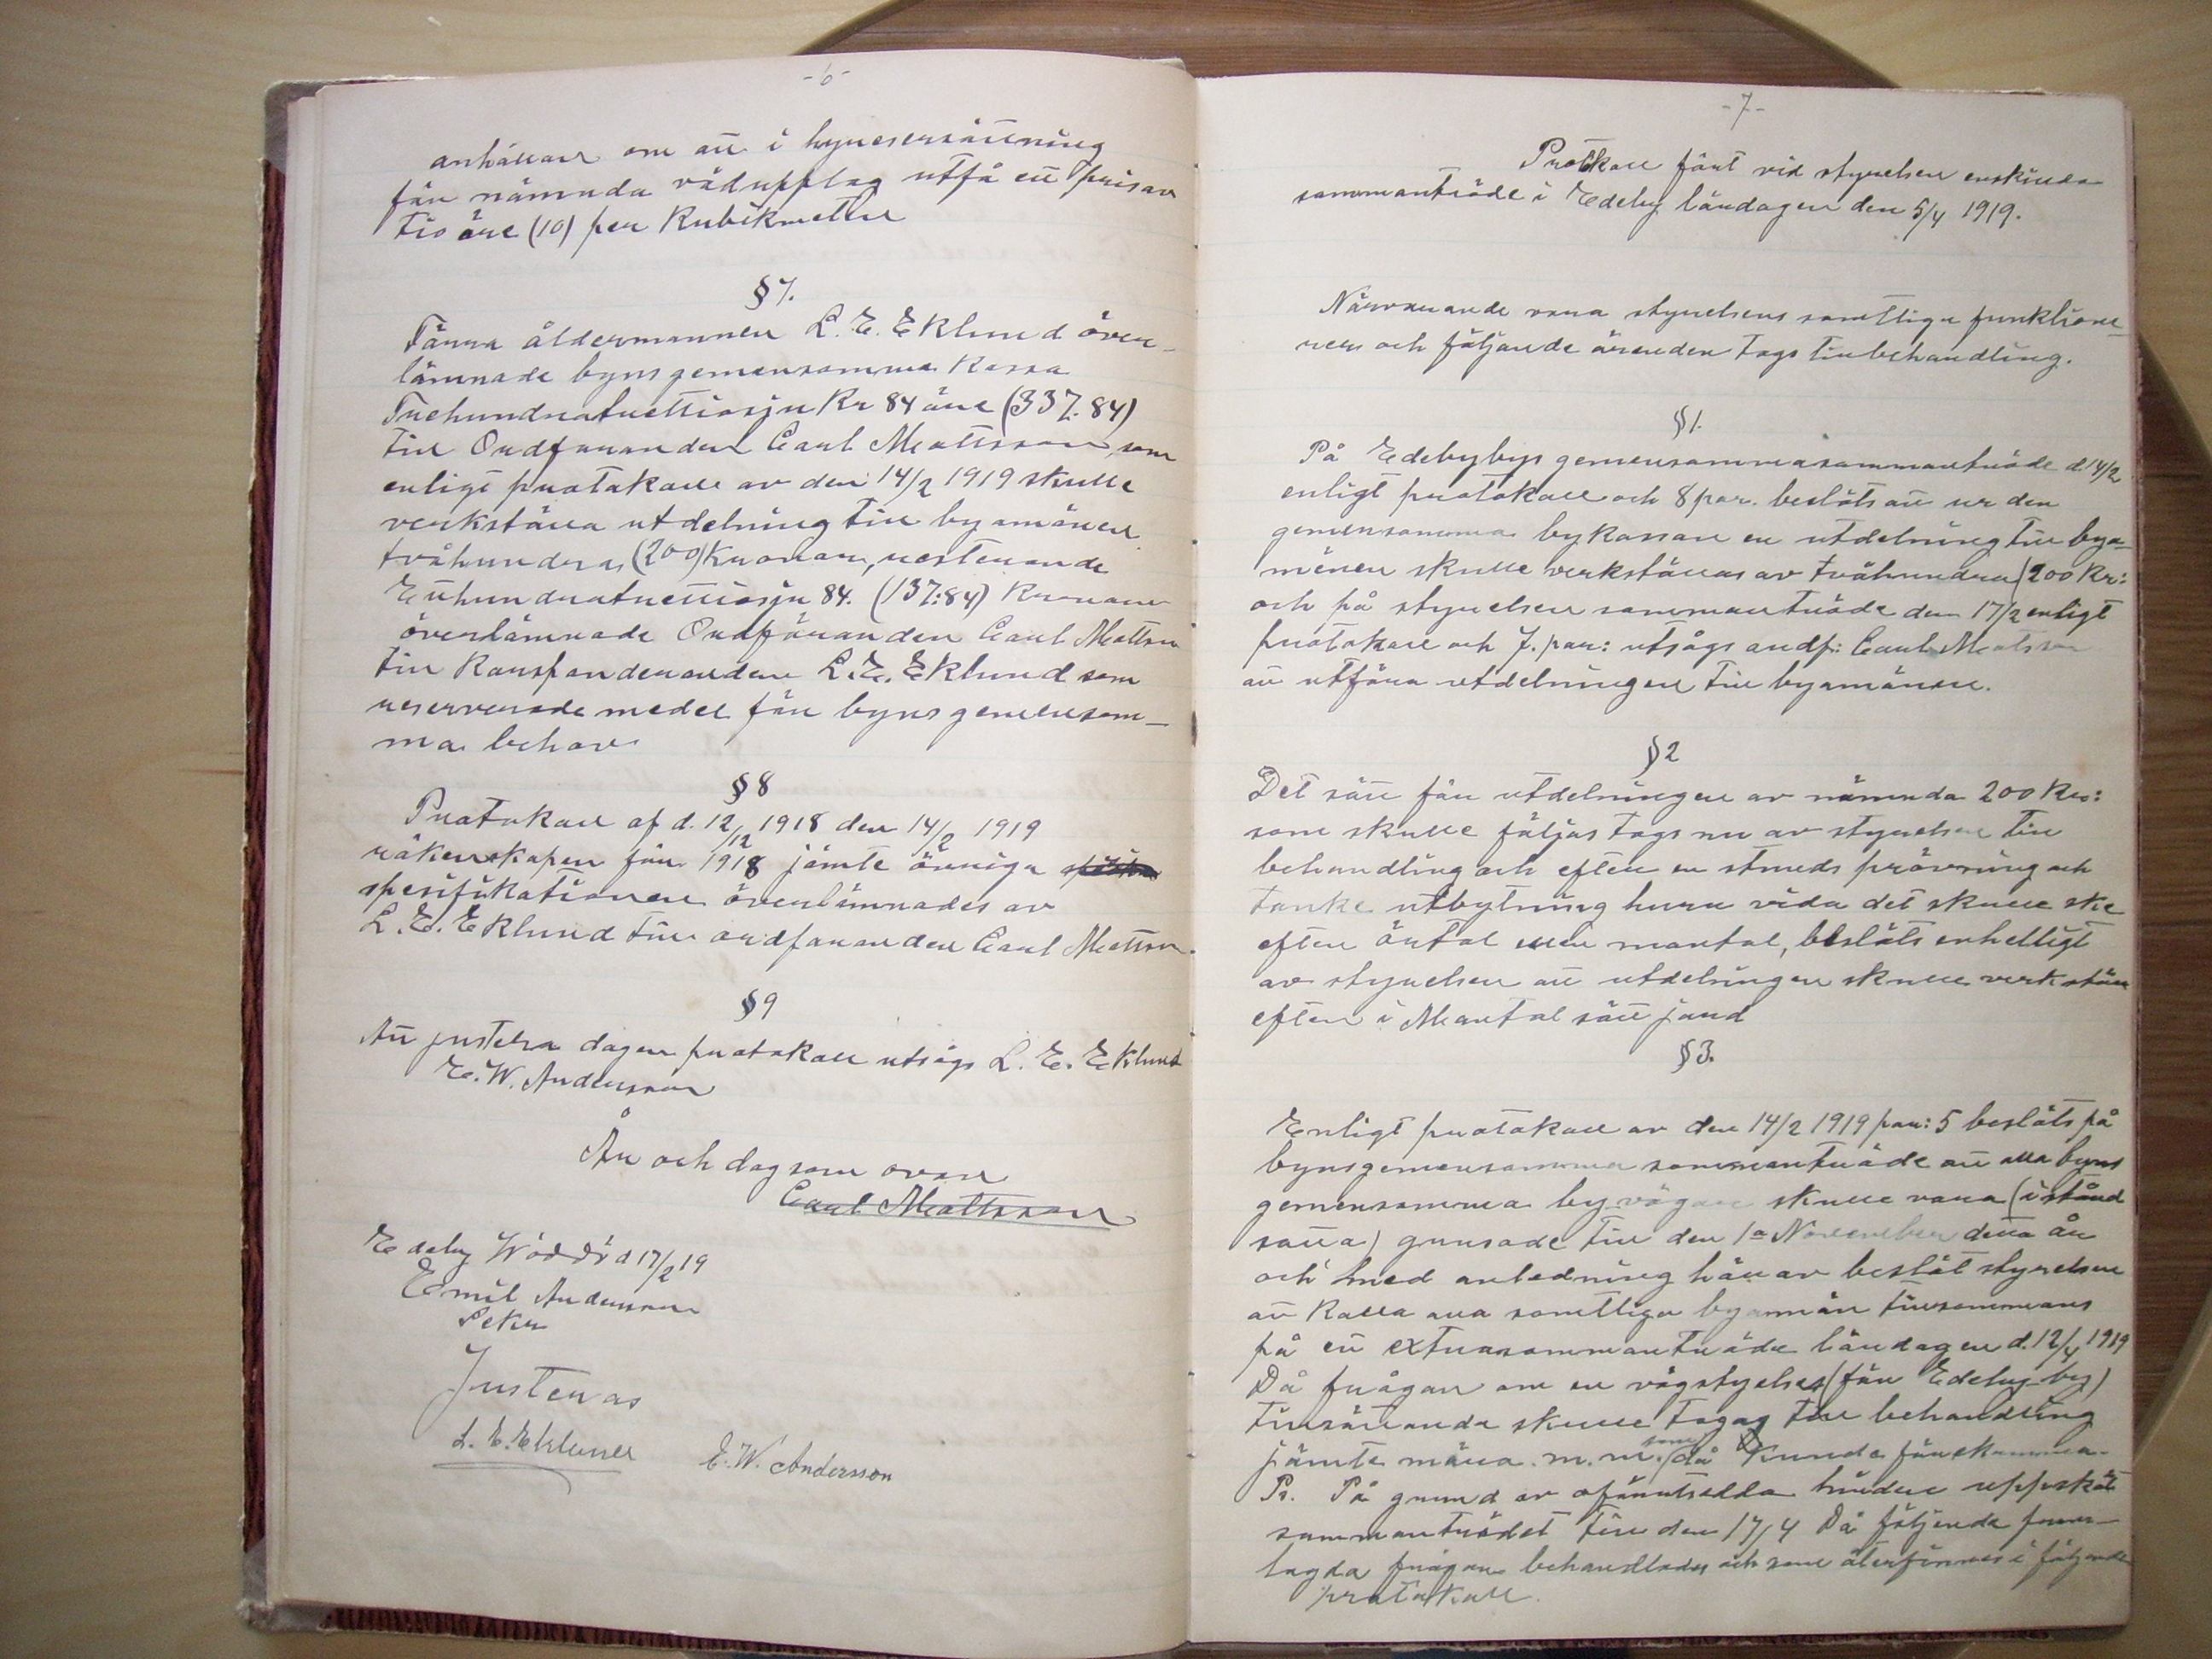 -6-
anhållan om att i hyresersättning
för nämnda vedupplag utfå ett pris av
tio öre (10) per Kubikmeter
§7.
Förra åldermannen L. E. Eklund över-
lämnade byns gemensamma Kassa
Trehundratrettiosju Kr 84 öre (337.84)
till Ordföranden Carl Mattsson som
enligt protokoll av den 14/2 1919 skulle
verkställa utdelning till byamänen
tvåhundra (200) Kronor, resterande
Etthundratrettiosju 84. (137:84) Kronor
överlämnade Ordföranden Carl Mattson
till Korsponderanden L. E. Eklund som
reserverade medel för byns gemensam-
ma behov
§8
Protokoll af d. 12/12 1918 den 14/2 1919
räkenskapen för 1918 jämte övriga
spesifikationer överlämnades av
L. E. Eklund till ordföranden Carl Mattson.
§9
Att justera dagen protokoll utsågs L. E. Eklund
E. W. Andersson
År och dag som ovan
Carl Mattsson
Edeby Wäddö d 17/2 19
Emil Andersson
Sekr
Justeras
L. E. Eklund E. W. Andersson
-7-
Protokoll fört vid styrelsen enskilda
sammanträde i Edeby lördagen den 5/4 1919.
Närvarande vara styrelsens samtliga funktione-
rers och följande ärenden togs till behandling.
§1.
På Edebybys gemensamma sammanträde d. 14/2
enligt protokoll och 8 par. beslöts att ur den
gemensamma bykassan en utdelning till bya-
mänen skulle verkställas av tvåhundra (200 Kr:
och på styrelsen sammanträde den 17/2 enligt
protokoll och 7. par: utsågs ordf: Carl Matsson
att utföra utdelningen till byamänen.
§2
Det sätt för utdelningen av nämnda 200 Kr:
som skulle följas togs nu av styrelsen till
behandling och efter en stunds prövning och
tanke utbytning huru vida det skulle ske
efter örtal eller mantal, beslöts enhelligt
av styrelsen att utdelningen skulle verkställa
efter i Mantal satt jord
§3.
Enligt protokoll av den 14/2 1919 par: 5 beslöts på
byns gemensamma sammanträde att alla byns
gemensamma byvägar skulle vara (i stånd
satta) grusade till den 1a November detta år
och med anledning härav beslöt styrelsen
att Kalla alla samtliga byamän tillsammans
på ett extrasammanträde lördagen d. 12/4 1919
Då frågan om en vägstyelses (för Edeby by)
tillsättande skulle tagas till behandling
jämte måla. m.m. som då Kunde förekomma.
Ps. På grund av oförutsedda hinder uppsköts
sammanträdet till den 17/4 Då följande fram-
lagda frågar behandlades och som återfinnes i följande
protokoll.